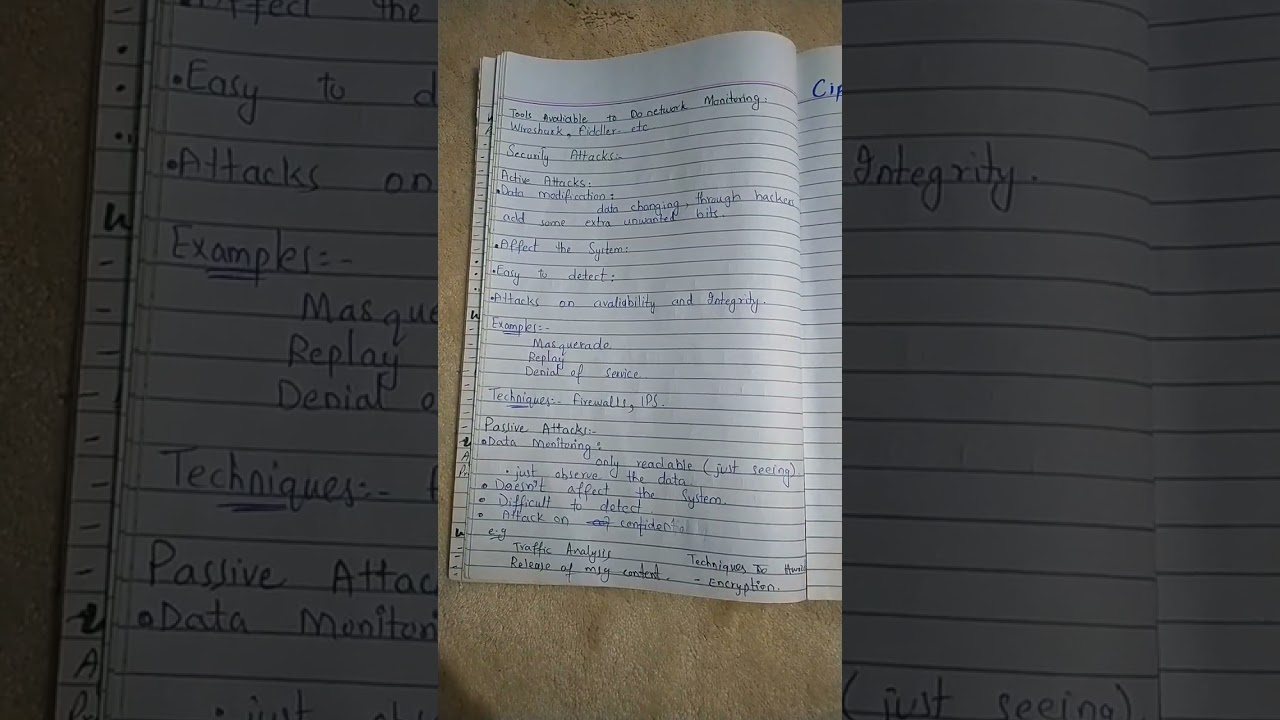 Tools Avaliable to Do network Monitoring:
Wireshark, Fiddler etc
Security Attacks:-
Active Attacks:
• Data modification:
data changing, through hacker
add some extra unwanted bits.
• Affect the System:
• Easy to detect:
• Attacks on avaliability and Integrity.
Examples:-
Masquerade
Replay
Denial of service
Techniques:- firewalls, IPS.
Passive Attacks:-
• Data Monitoring:
only readable (just seeing).
• just observe the data
• Doesn't affect the System.
• Difficult to detect.
• Attack on confidential
e.g
Traffic Analysis
Release of msg content.
Techniques To
- Encryption.
Cip